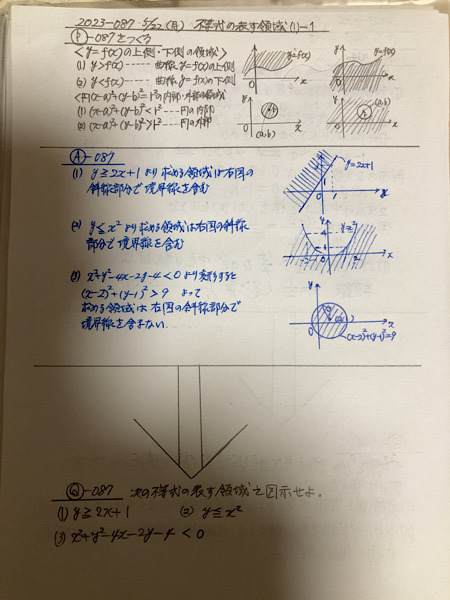 2023-087 5/22(月) 不等式の表す領域(1)-1
Ⓟ-087をつくる
<y=f(x)の上側・下側の領域>
(1) y>f(x)----- 曲線 y=f(x)の上側
(2) y<f(x)----- 曲線 y=f(x)の下側
<円(x-a)²+(y-b)²=r²の内部・外部の領域>
(1) (x-a)²+(y-b)²<r² ---円の内部
(2) (x-a)²+(y-b)²>r² ---円の外部
y
y=f(x)
O
x
y
y=f(x)
O
x
y
r
(a,b)
O
x
y
(a,b)
r
O
x
Ⓐ-087
(1) y≧2x+1 より求める領域は右図の
斜線部分で境界線を含む
y
y=2x+1
1
O
1
x
(2) y≦x² より求める領域は右図の斜線
部分で境界線を含む
y
y=x²
4
O
2
x
(3) x²+y²-4x-2y-4<0 より変形すると
(x-2)²+(y-1)²>9 よって
求める領域は右図の斜線部分で
境界線を含まない
y
O
x
(x-2)²+(y-1)²=9
Ⓠ-087 次の不等式の表す領域を図示せよ。
(1) y≧2x+1 (2) y≦x²
(3) x²+y²-4x-2y-4<0